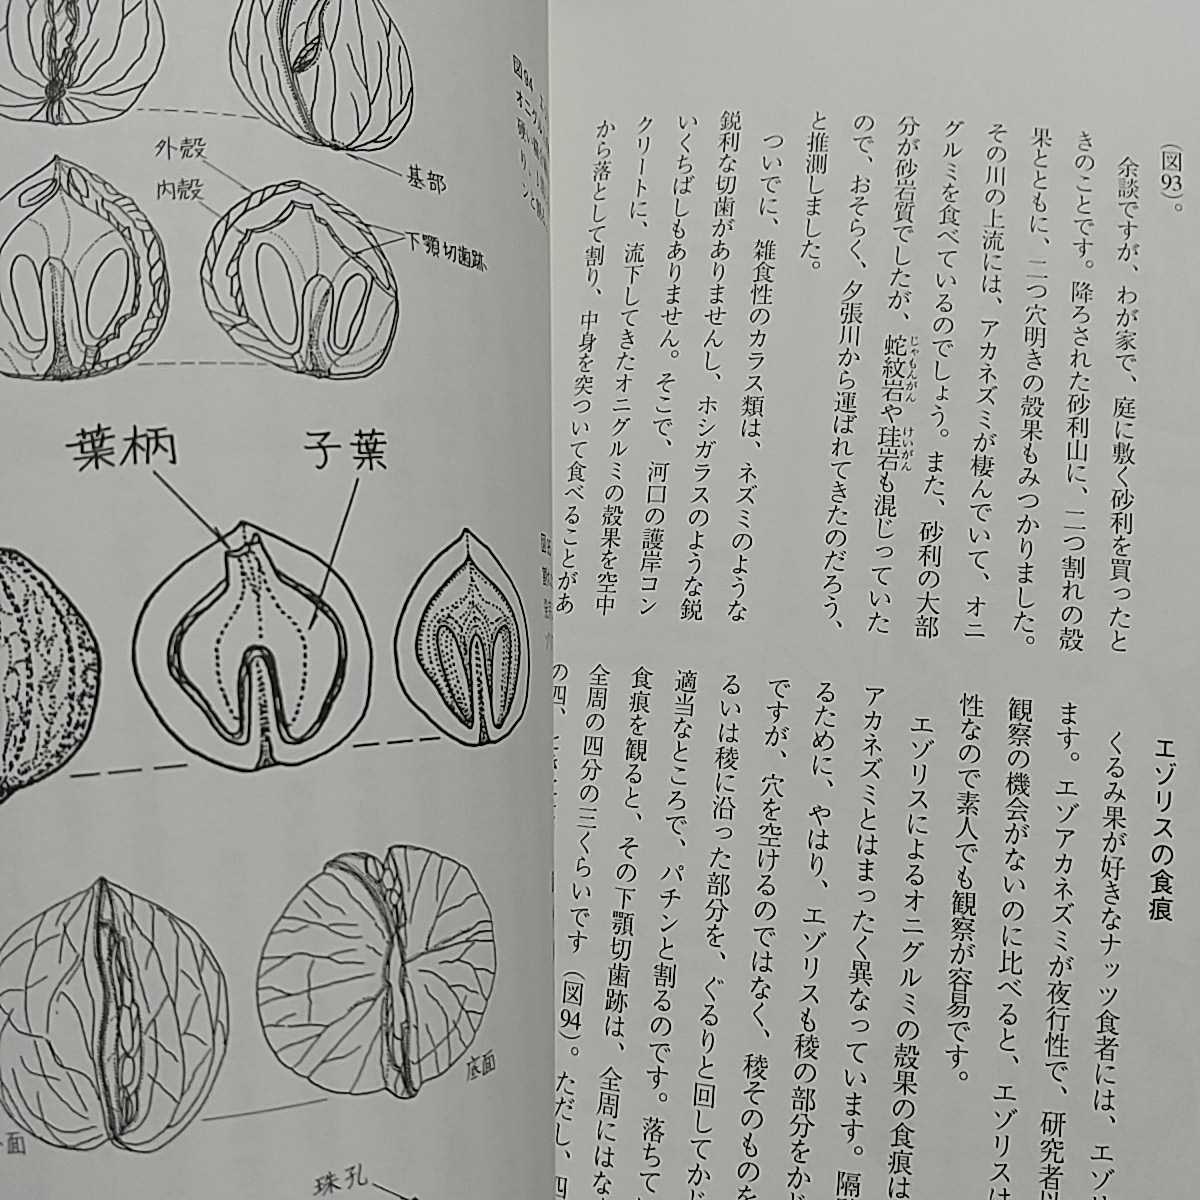 (図93)。
余談ですが、わが家で、庭に敷く砂利を買ったと
きのことです。降ろされた砂利山に、二つ割れの殻
果とともに、二つ穴明きの殻果もみつかりました。
その川の上流には、アカネズミが棲んでいて、オニ
グルミを食べているのでしょう。また、砂利の大部
分が砂岩質でしたが、蛇紋岩や珪岩も混じっていた
じゃもんがん
けいがん
ので、おそらく、夕張川から運ばれてきたのだろう、
と推測しました。
ついでに、雑食性のカラス類は、ネズミのような
鋭利な切歯がありませんし、ホシガラスのような鋭
いくちばしもありません。そこで、河口の護岸コン
クリートに、流下してきたオニグルミの殻果を空中
から落として割り、中身を突ついて食べることがあ
エゾリスの食痕
くるみ果が好きなナッツ食者には、エゾ
ます。エゾアカネズミが夜行性で、研究者
観察の機会がないのに比べると、エゾリスは
性なので素人でも観察が容易です。
エゾリスによるオニグルミの殻果の食痕は
アカネズミとはまったく異なっています。隔
るために、やはり、エゾリスも稜の部分をか
ですが、穴を空けるのではなく、稜そのものを
るいは稜に沿った部分を、ぐるりと回してか
適当なところで、パチンと割るのです。落ちて
食痕を観ると、その下顎切歯跡は、全周にはな
全周の四分の三くらいです(図94)。ただし、四
の四、
図94
オニグルミ
外殻
内殻
基部
下顎切歯跡
葉柄
子葉
底面
面
珠孔